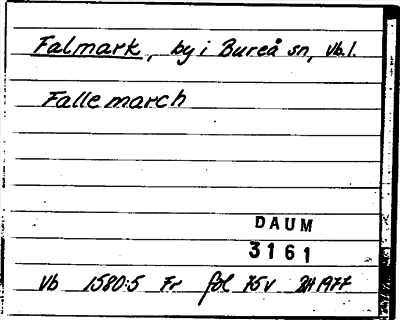 Falmark, by i Bureå sn, Vb.l.
Fallemarch
DAUM
3161
Vb 1580:5 Fr fol 75v BH 1977